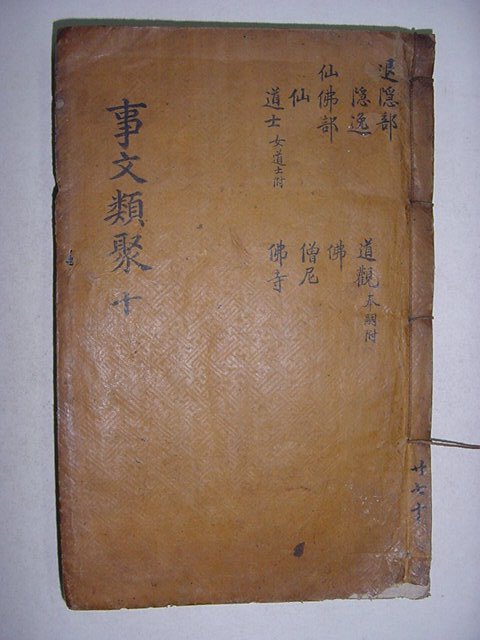 退隱部
隱逸
仙佛部
仙
道士 女道士附
道觀
佛
僧尼
佛寺
事文類聚 十